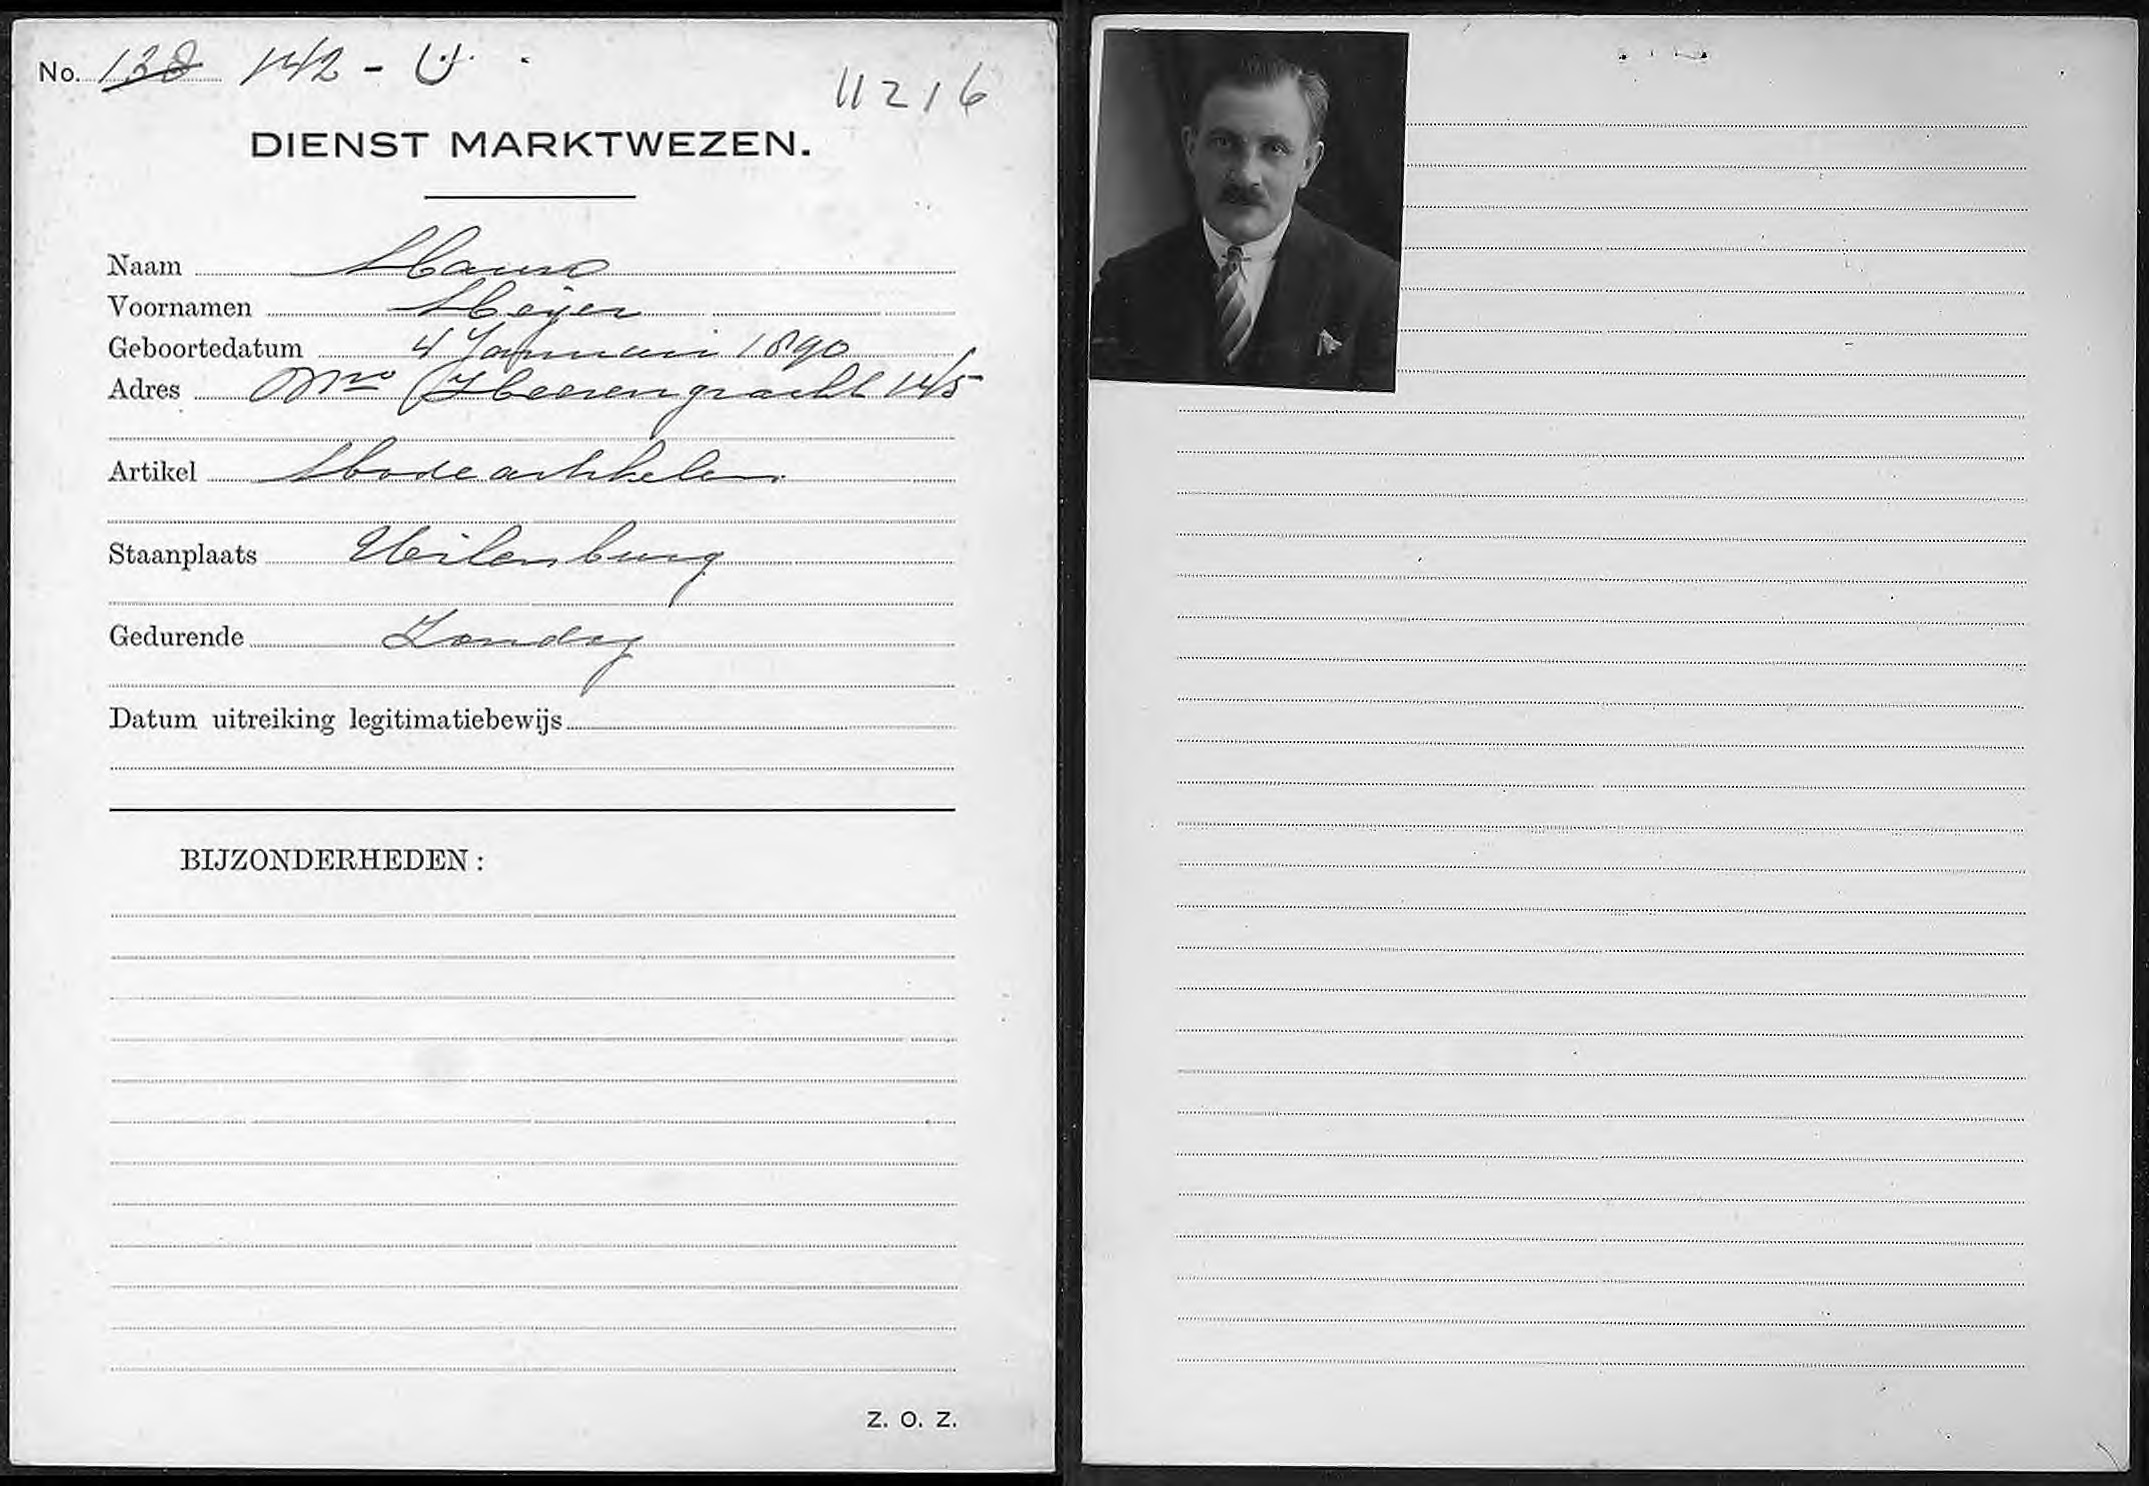 No. 138 142 - U.
11216
DIENST MARKTWEZEN.
Naam
Voornamen Meijer
Geboortedatum 4 Januari 1890
Adres Nwe Heerengracht 145
Artikel Modeartikelen
Staanplaats Uilenburg
Gedurende Zondag
Datum uitreiking legitimatiebewijs
BIJZONDERHEDEN:
Z. O. Z.